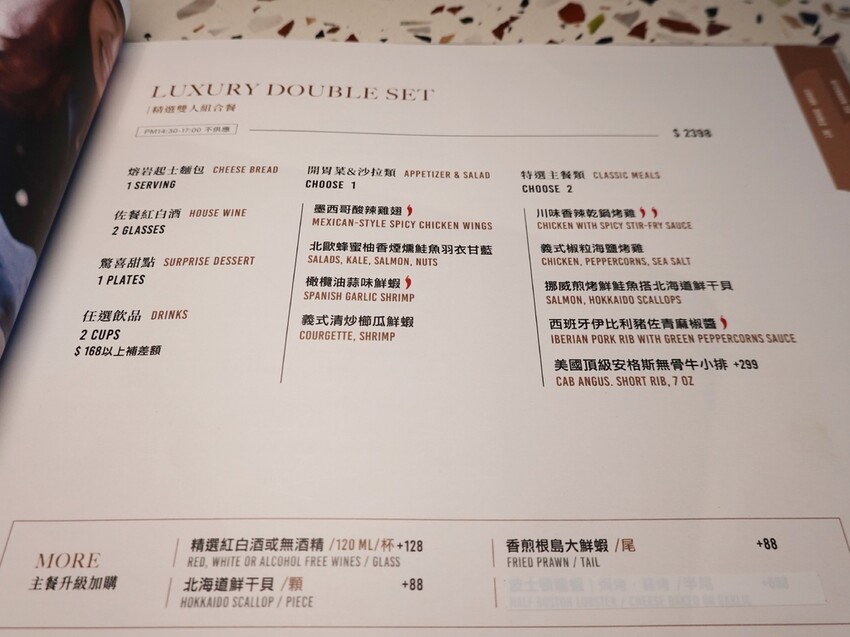 LUXURY DOUBLE SET
精選雙人組合餐
PM14:30-17:00 不供應
$ 2398
熔岩起士麵包 CHEESE BREAD
1 SERVING
佐餐紅白酒 HOUSE WINE
2 GLASSES
驚喜甜點 SURPRISE DESSERT
1 PLATES
任選飲品 DRINKS
2 CUPS
$ 168以上補差額
開胃菜&沙拉類 APPETIZER & SALAD
CHOOSE 1
墨西哥酸辣雞翅
MEXICAN-STYLE SPICY CHICKEN WINGS
北歐蜂蜜柚香煙燻鮭魚羽衣甘藍
SALADS, KALE, SALMON, NUTS
橄欖油蒜味鮮蝦
SPANISH GARLIC SHRIMP
義式清炒櫛瓜鮮蝦
COURGETTE, SHRIMP
特選主餐類 CLASSIC MEALS
CHOOSE 2
川味香辣乾鍋烤雞
CHICKEN WITH SPICY STIR-FRY SAUCE
義式椒粒海鹽烤雞
CHICKEN, PEPPERCORNS, SEA SALT
挪威煎烤鮮鮭魚搭北海道鮮干貝
SALMON, HOKKAIDO SCALLOPS
西班牙伊比利豬佐青麻椒醬
IBERIAN PORK RIB WITH GREEN PEPPERCORNS SAUCE
美國頂級安格斯無骨牛小排 +299
CAB ANGUS. SHORT RIB, 7 OZ
MORE
主餐升級加購
精選紅白酒或無酒精 /120 ML/杯 +128
RED, WHITE OR ALCOHOL FREE WINES / GLASS
北海道鮮干貝 /顆 +88
HOKKAIDO SCALLOP / PIECE
香煎根島大鮮蝦 /尾 +88
FRIED PRAWN / TAIL